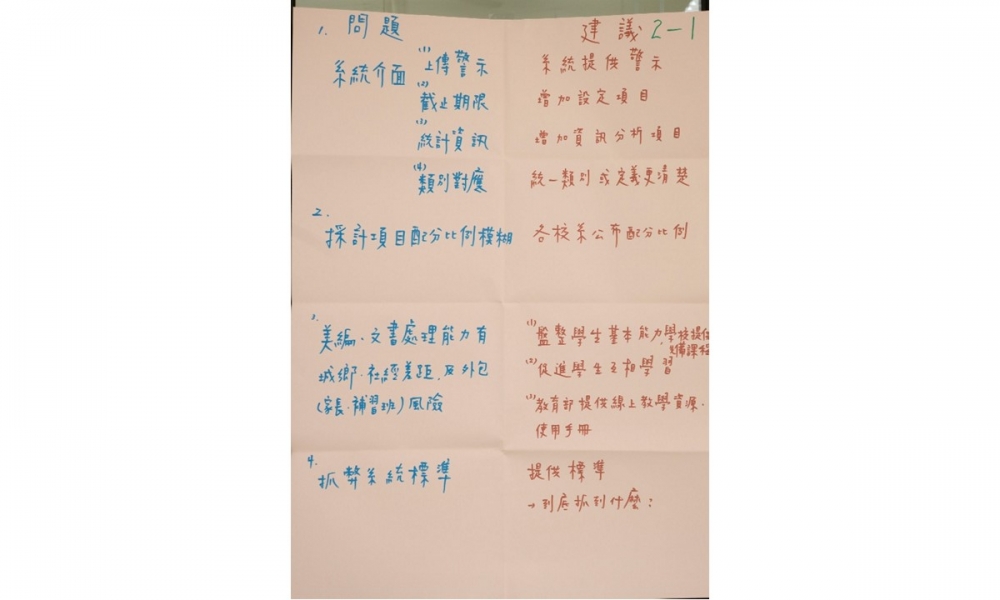 1. 問題 建議 2-1
系統介面 (1) 上傳警示 系統提供警示
(2) 截止期限 增加設定項目
(3) 統計資訊 增加資訊分析項目
(4) 類別對應 統一類別或定義更清楚
2.
採計項目配分比例模糊 各校系公布配分比例
3.
美編、文書處理能力有 (1) 盤整學生基本能力,學校提供
準備課程
城鄉、社經差距,及外包 (2) 促進學生互相學習
(家長、補習班)風險 (3) 教育部提供線上教學資源、
使用手冊
4.
抓弊系統標準 提供標準
→到底抓到什麼?